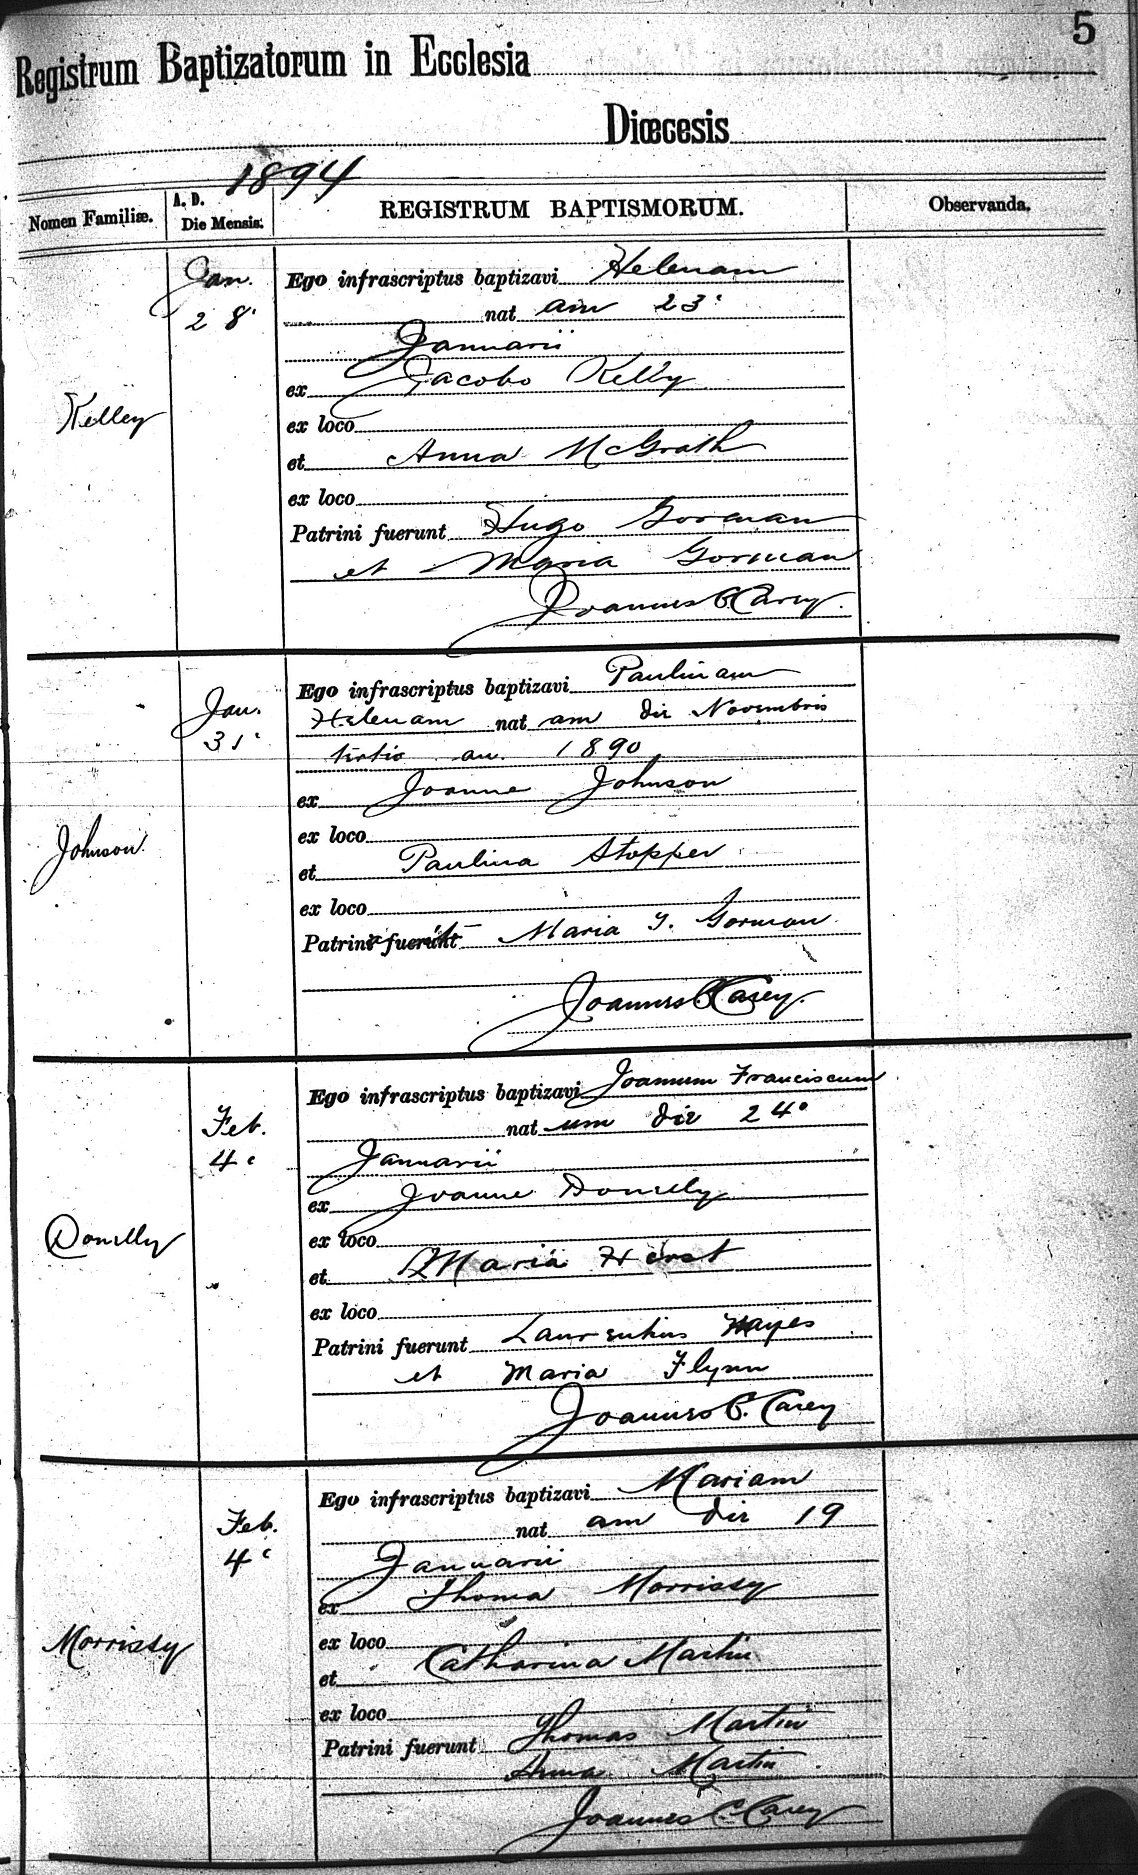 5
Registrum Baptizatorum in Ecclesia
Diœcesis
1894
Nomen Familiæ. A. D. Die Mensis. REGISTRUM BAPTISMORUM. Observanda.
Jan. Ego infrascriptus baptizavi Helenam
28 nat am 23
Januarii
ex Jacobo Kelly
Kelley
ex loco
et Anna McGrath
ex loco
Patrini fuerunt Hugo Gorman
et Maria Gorman
Joannes C. Carey.
Ego infrascriptus baptizavi Paulinam
Jan. Helenam nat am die Novembris
31 tertio an. 1890
ex Joanne Johnson
ex loco
Johnson.
et Paulina Stopper
ex loco
Patrini fuerunt Maria J. Gorman
Joannes C. Carey.
Ego infrascriptus baptizavi Joannem Franciscum
Feb. nat um die 24
4 Januarii
ex Joanne Donelly
Donelly
ex loco
et Maria Herst
ex loco
Patrini fuerunt Laurentius Hayes
et Maria Flynn
Joannes C. Carey
Ego infrascriptus baptizavi Mariam
Feb. nat am die 19
4 Januarii
ex Thoma Morrissy
Morrissy ex loco
et Catharina Martin
ex loco
Patrini fuerunt Thomas Martin
Anna Martin
Joannes C. Carey